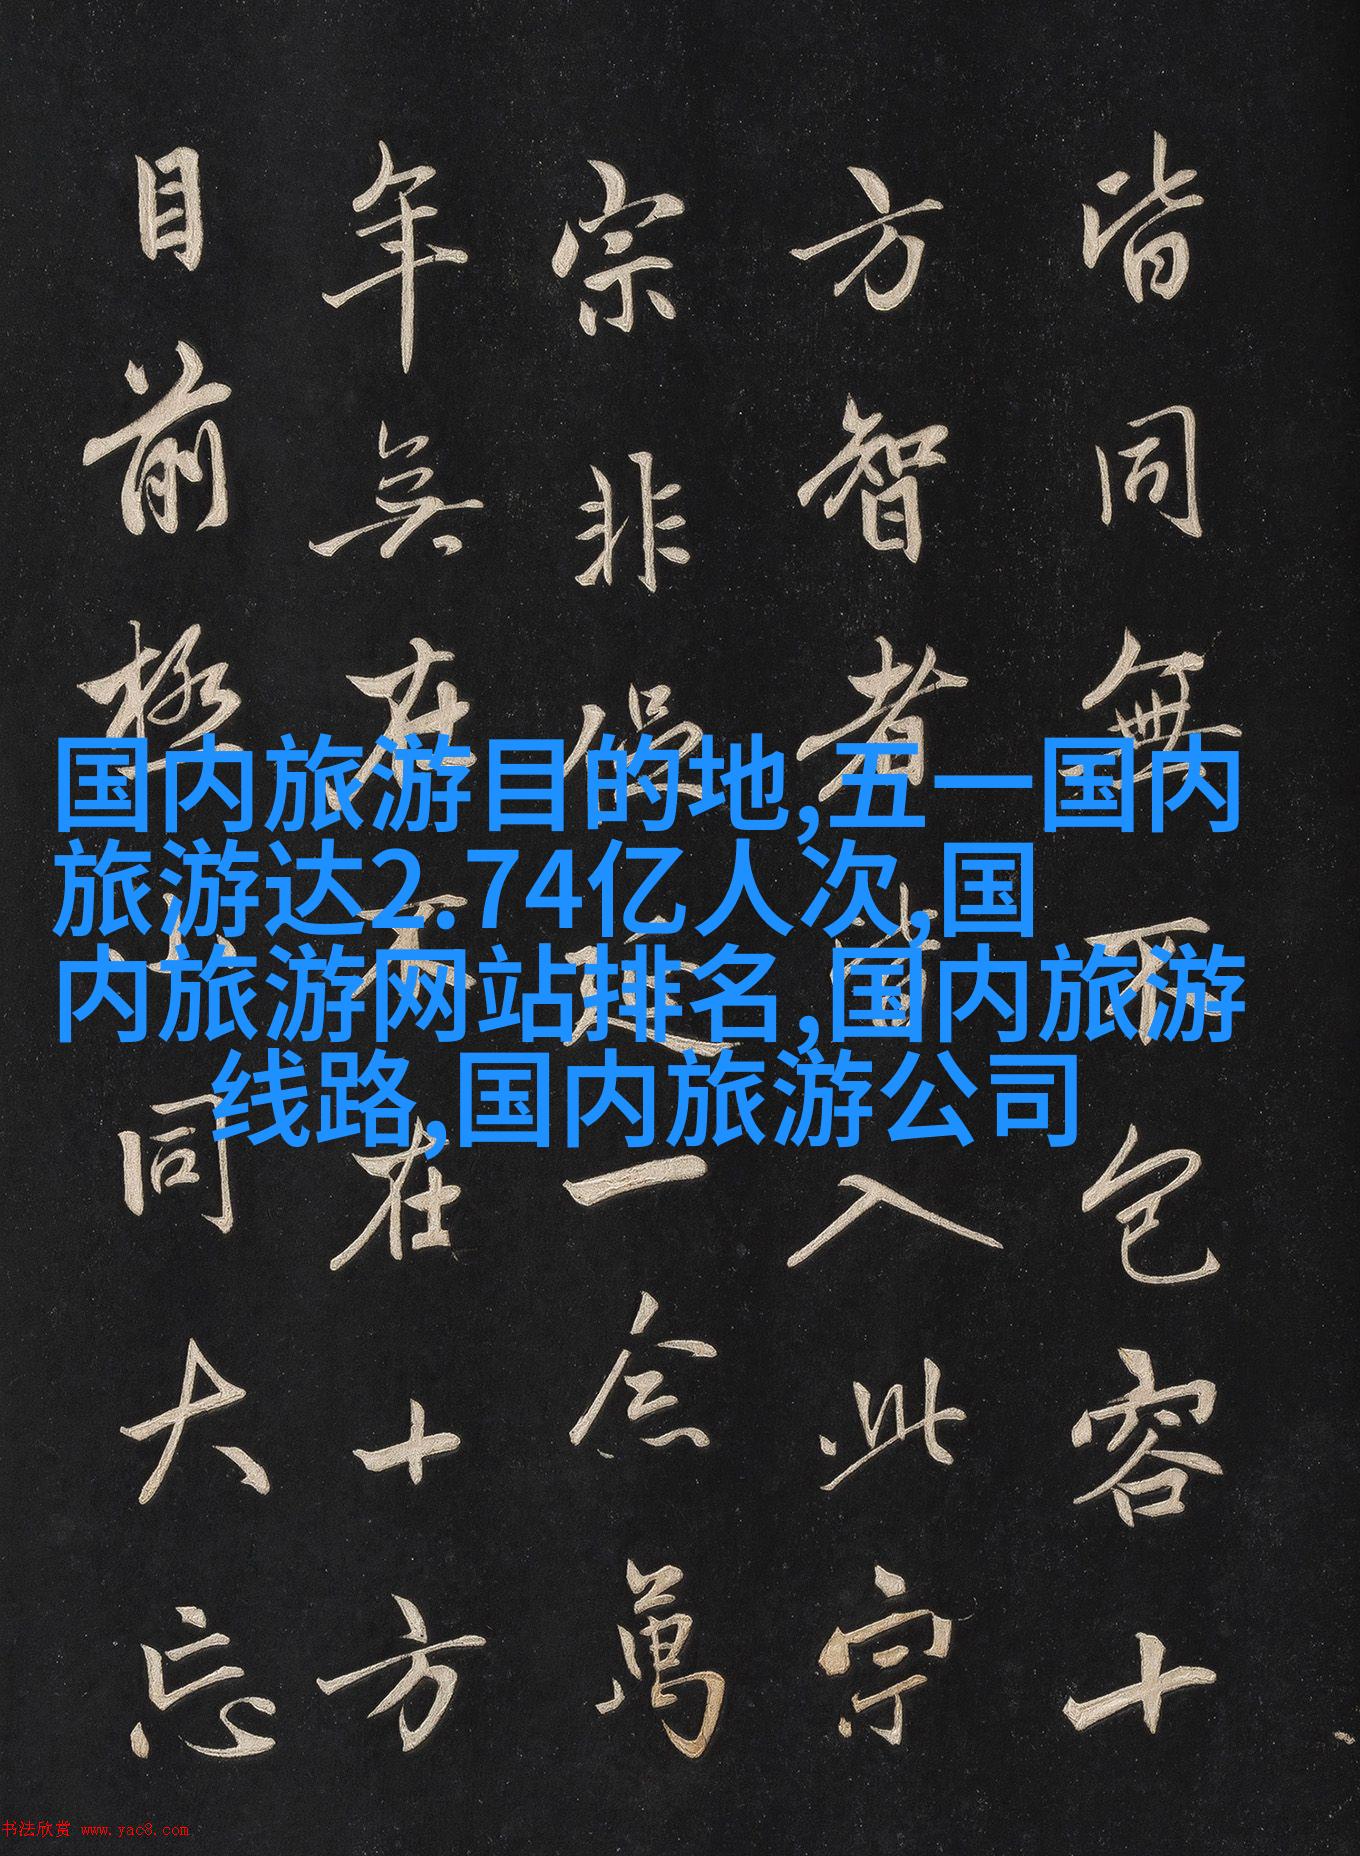 皆同無不包容十
方智者皆入此宗
宗非促延一念萬
年無在不在十方
目前極小同大忘
国内旅游目的地,五一国内
旅游达2.74亿人次,国
内旅游网站排名,国内旅游
线路,国内旅游公司
书法欣赏 www.yac8.com